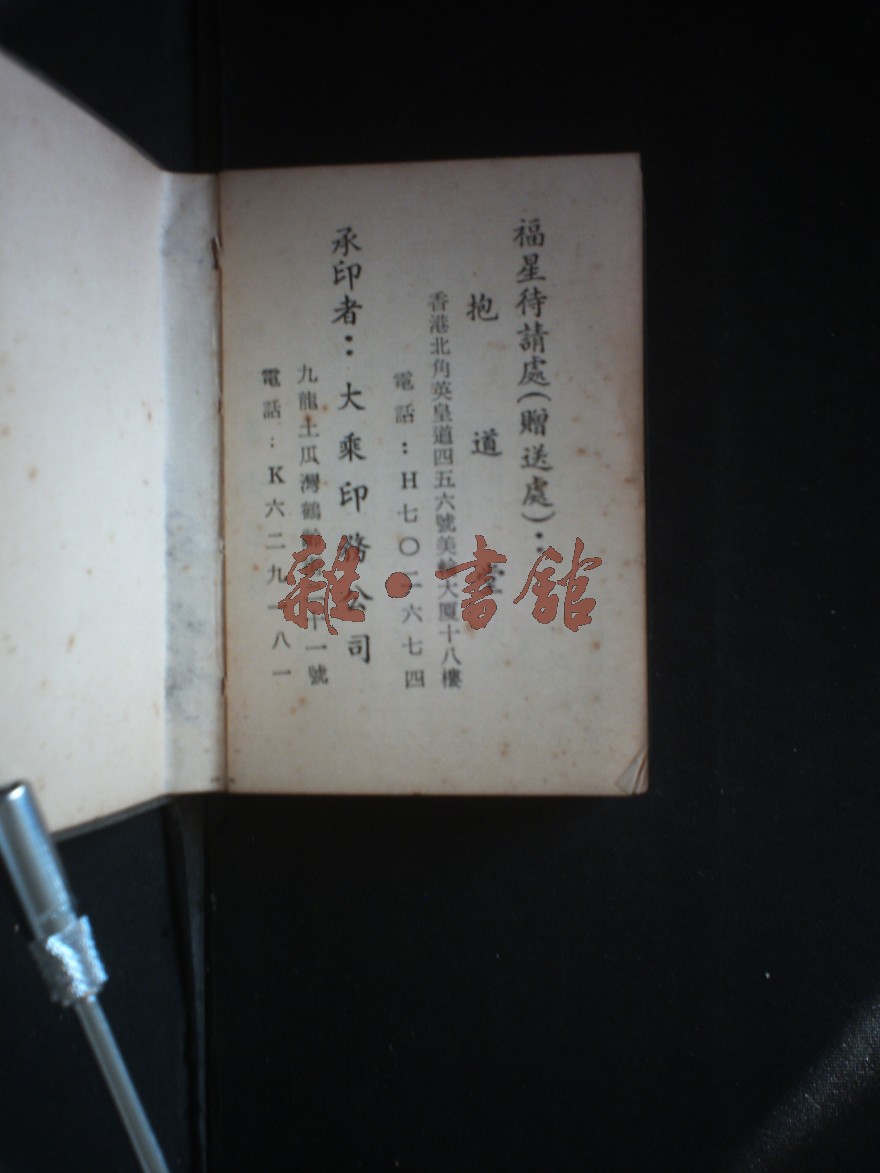 福星待請處(贈送處)：
抱道堂
香港北角英皇道四五六號美輪大厦十八樓
電話：H七〇二六七四
承印者：大乘印務公司
九龍土瓜灣鶴齡街十一號
電話：K六二九一八一
雜·書館